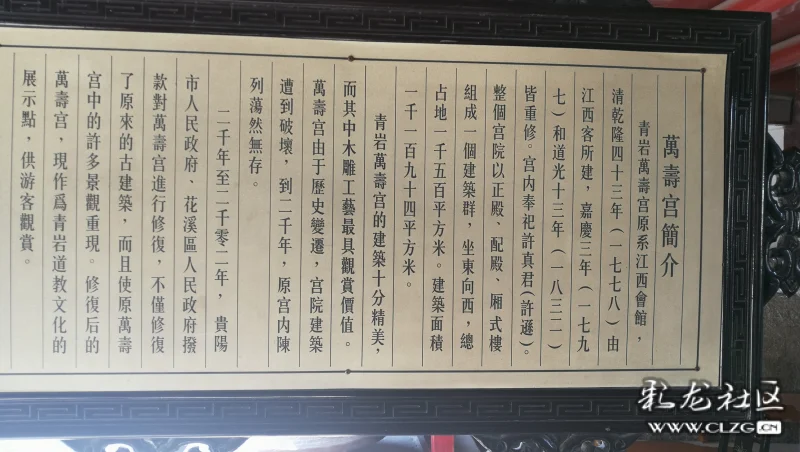 萬壽宮簡介
青岩萬壽宮原系江西會館，
清乾隆四十三年（一七七八）由
江西客所建，嘉慶三年（一七九
七）和道光十三年（一八三二）
皆重修。宮内奉祀許真君（許遜）。
整個宮院以正殿、配殿、厢式樓
組成一個建築群，坐東向西，總
占地一千五百平方米。建築面積
一千一百九十四平方米。
青岩萬壽宮的建築十分精美，
而其中木雕工藝最具觀賞價值。
萬壽宮由于歷史變遷，宮院建築
遭到破壞，到二千年，原宮内陳
列蕩然無存。
二千年至二千零二年，貴陽
市人民政府、花溪區人民政府撥
款對萬壽宮進行修復，不僅修復
了原來的古建築，而且使原萬壽
宮中的許多景觀重現。修復后的
萬壽宮，現作爲青岩道教文化的
展示點，供游客觀賞。
彩龙社区
WWW.CLZG.CN